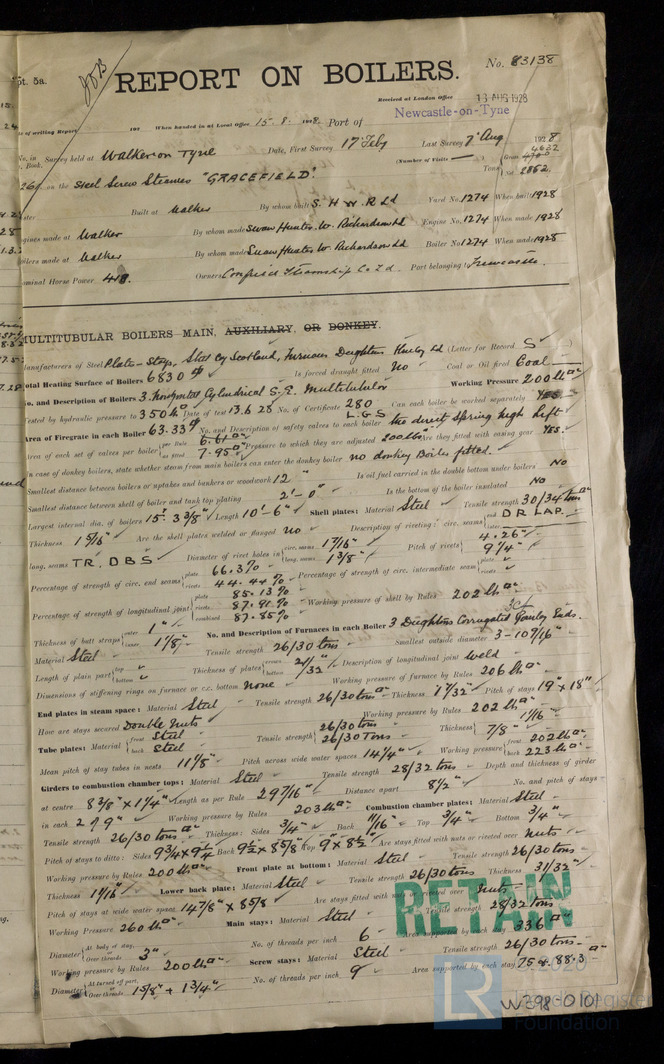 pt. 5a.
JOB
REPORT ON BOILERS.
No. 83138
Received at London Office 13 AUG 1928
of writing Report 192 When handed in at Local Office 15.8.1928 Port of Newcastle-on-Tyne
No. in Survey held at Walker on Tyne Date, First Survey 17 Feby Last Survey 7 Aug 1928
Book. (Number of Visits) Gross 4632
on the Steel Screw Steamer "GRACEFIELD" Tons Net 2862
Built at Walker By whom built S. H. W. R Ld Yard No. 1274 When built 1928
Engines made at Walker By whom made Swan Hunter W. Richardson Ld Engine No. 1274 When made 1928
Boilers made at Walker By whom made Swan Hunter W. Richardson Ld Boiler No. 1274 When made 1928
Nominal Horse Power 418 Owners Steamship Co Ld Port belonging to Newcastle
MULTITUBULAR BOILERS—MAIN, AUXILIARY, OR DONKEY.
Manufacturers of Steel Plates - Stays, Steel Coy Scotland, Furnaces Deighton Ld (Letter for Record S)
Total Heating Surface of Boilers 6830 Is forced draught fitted No Coal or Oil fired Coal
No. and Description of Boilers 3 Horizontal Cylindrical S.E. Multitubular Working Pressure 200 lbs
Tested by hydraulic pressure to 350 lbs Date of test 13.6.28 No. of Certificate 280 Can each boiler be worked separately Yes
Area of Firegrate in each Boiler 63.33 No. and Description of safety valves to each boiler L.G.S two direct Spring high lift
Area of each set of valves per boiler per Rule 6.61 as fitted 7.95 Pressure to which they are adjusted 200 lbs Are they fitted with easing gear Yes.
In case of donkey boilers, state whether steam from main boilers can enter the donkey boiler no donkey Boiler fitted.
Smallest distance between boilers or uptakes and bunkers or woodwork 12" Is oil fuel carried in the double bottom under boilers No
Smallest distance between shell of boiler and tank top plating 2'-0" Is the bottom of the boiler insulated No
Largest internal dia. of boilers 15'. 3 3/8" Length 10'-6" Shell plates: Material Steel Tensile strength 30/34 tons
Thickness 1 5/16" Are the shell plates welded or flanged no Description of riveting: circ. seams end D R LAP. inter.
long. seams TR. DBS Diameter of rivet holes in circ. seams 1 7/16" long. seams 1 3/8" Pitch of rivets 4.26" 9 1/4"
Percentage of strength of circ. end seams plate 66.3% rivets 44.44% Percentage of strength of circ. intermediate seam plate rivets
Percentage of strength of longitudinal joint plate 85.13% rivets 87.91% combined 87.85% Working pressure of shell by Rules 202 lbs
Thickness of butt straps outer 1" inner 1 1/8" No. and Description of Furnaces in each Boiler 3 Deighton Corrugated Ends.
Material Steel Tensile strength 26/30 tons Smallest outside diameter 3-10 9/16"
Length of plain part top bottom Thickness of plates crown bottom 21/32" Description of longitudinal joint weld
Dimensions of stiffening rings on furnace or c.c. bottom none Working pressure of furnace by Rules 206 lbs
End plates in steam space: Material Steel Tensile strength 26/30 tons Thickness 1 7/32" Pitch of stays 19" x 18"
How are stays secured Double nuts Working pressure by Rules 202 lbs
Tube plates: Material front Steel back Steel Tensile strength 26/30 tons 26/30 tons Thickness 1 1/16" 7/8"
Mean pitch of stay tubes in nests 11 5/8" Pitch across wide water spaces 14 1/4" Working pressure front 202 lbs back 223 lbs
Girders to combustion chamber tops: Material Steel Tensile strength 28/32 tons Depth and thickness of girder
at centre 8 3/8" x 1 1/4" Length as per Rule 29 7/16" Distance apart 8 1/2" No. and pitch of stays
in each 2 / 9" Working pressure by Rules 203 lbs Combustion chamber plates: Material Steel
Tensile strength 26/30 tons Thickness: Sides 3/4" Back 11/16" Top 3/4" Bottom 3/4"
Pitch of stays to ditto: Sides 9 3/4 x 9 1/4 Back 9 1/2 x 8 5/8 Top 9" x 8 1/2" Are stays fitted with nuts or riveted over nuts
Working pressure by Rules 200 lbs Front plate at bottom: Material Steel Tensile strength 26/30 tons
Thickness 1 1/16" Lower back plate: Material Steel Tensile strength 26/30 tons Thickness 31/32"
Pitch of stays at wide water space 14 7/8" x 8 5/8 Are stays fitted with nuts or riveted over nuts
Working Pressure 260 lbs Main stays: Material Steel Tensile strength 28/32 tons
Diameter At body of stay, or Over threads 3" No. of threads per inch 6 Area supported by each stay 336
Working pressure by Rules 200 lbs Screw stays: Material Steel Tensile strength 26/30 tons
Diameter At turned off part, or Over threads 1 5/8" + 1 3/4" No. of threads per inch 9 Area supported by each stay 75 + 88.3
RETAIN
© 2020
LR
Lloyd's Register
Foundation
W298 0101